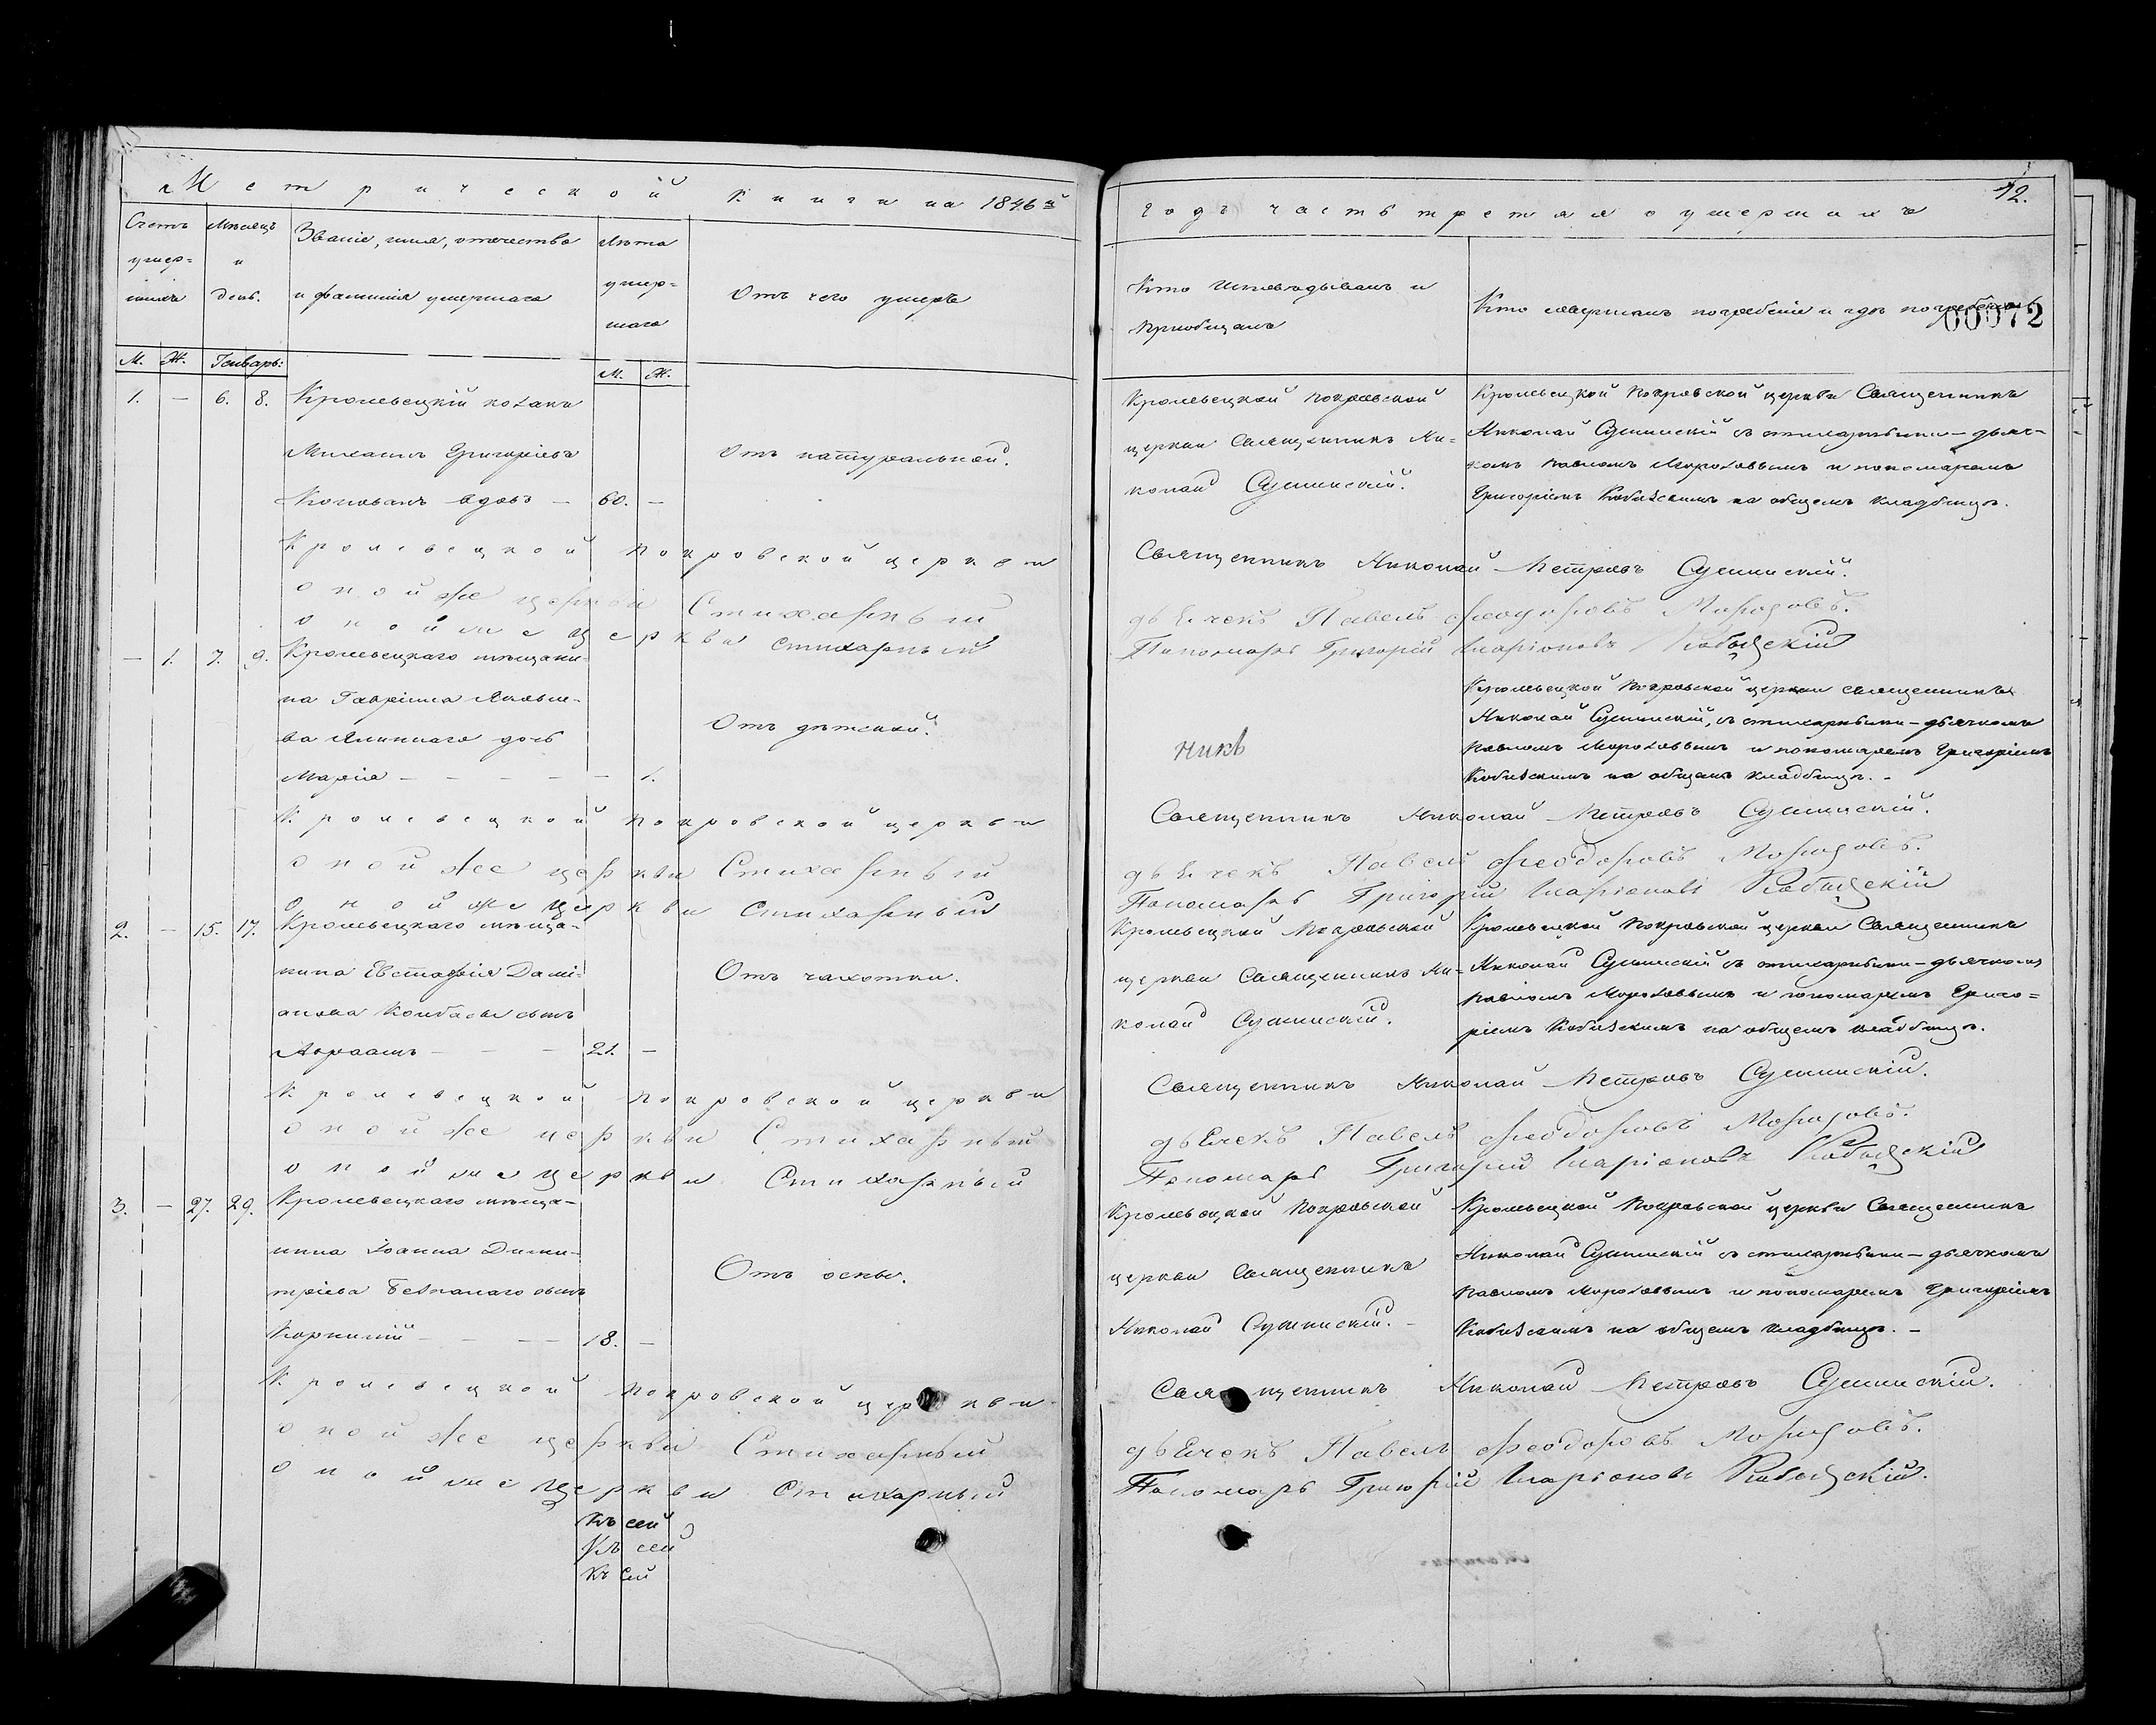 Метрической книги на 1846й
Счетъ умер- шихъ
Мѣсяцъ и день.
Званіе, имя, отечество и фамилія умершаго
Лѣта умер- шаго
Отъ чего умеръ
М. Ж. Генварь: М. Ж.
1. — 6. 8. Кролевецкій козакъ
Михаилъ Григоріевъ
вдовъ — 60. —
Отъ натуральной.
Кролевецкой Покровской церкви
оной же церкви Стихарный
оной же церкви Стихарный
— 1. 7. 9. Кролевецкаго мѣщани-
на Гавріила Яковле-
ва дочь
Марія — — — — — 1.
Отъ дѣтской.
Кролевецкой Покровской церкви
оной же церкви Стихарный
оной же церкви Стихарный
2. — 15. 17. Кролевецкаго мѣща-
нина Евстафія Дамі-
анова Колбасы сынъ
Авраамъ — — — 21. —
Отъ чахотки.
Кролевецкой Покровской церкви
оной же церкви Стихарный
оной же церкви Стихарный
3. — 27. 29. Кролевецкаго мѣща-
нина Іоанна Дими-
тріева сынъ
Корнилій — — — — 18. —
Отъ оспы.
Кролевецкой Покровской церкви
оной же церкви Стихарный
оной же церкви Стихарный
Къ сей
Къ сей
Къ сей
12.
годъ часть третья о умершихъ
Кто исповѣдывалъ и
пріобщалъ
Кто совершалъ погребеніе и гдѣ погребены
00972
Кролевецкой Покровской
церкви Священникъ Ни-
колай Сушинскій.
Кролевецкой Покровской церкви Священникъ
Николай Сушинскій съ стихарными — дьяч-
комъ Павломъ Морозовымъ и пономаремъ
Григоріемъ Кобызскимъ на общемъ кладбищѣ.
Священникъ Николай Петровъ Сушинскій.
дьячекъ Павелъ Феодоровъ Морозовъ.
Пономарь Григорій Иларіоновъ Кобызскій
Кролевецкой Покровской церкви священникъ
Николай Сушинскій, съ стихарными — дьячкомъ
Павломъ Морозовымъ и пономаремъ Григоріемъ
Кобызскимъ на общемъ кладбищѣ. —
Священникъ Николай Петровъ Сушинскій.
дьячекъ Павелъ Феодоровъ Морозовъ.
Пономарь Григорій Иларіоновъ Кобызскій
Кролевецкой Покровской
церкви Священникъ Ни-
колай Сушинскій.
Кролевецкой Покровской церкви Священникъ
Николай Сушинскій съ стихарными — дьячкомъ
Павломъ Морозовымъ и пономаремъ Григо-
ріемъ Кобызскимъ на общемъ кладбищѣ.
Священникъ Николай Петровъ Сушинскій.
дьячекъ Павелъ Феодоровъ Морозовъ.
Пономарь Григорій Иларіоновъ Кобызскій
Кролевецкой Покровской
церкви Священникъ
Николай Сушинскій. —
Кролевецкой Покровской церкви Священникъ
Николай Сушинскій съ стихарными — дьячкомъ
Павломъ Морозовымъ и пономаремъ Григоріемъ
Кобызскимъ на общемъ кладбищѣ. —
Священникъ Николай Петровъ Сушинскій.
дьячекъ Павелъ Феодоровъ Морозовъ.
Пономарь Григорій Иларіоновъ Кобызскій.